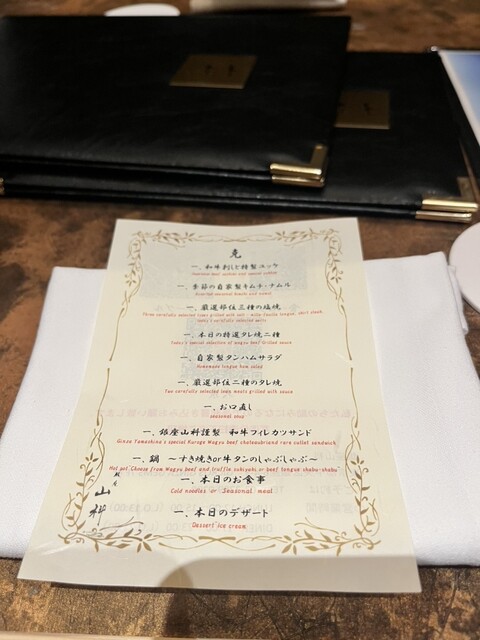 一、和牛刺しと特製ユッケ
一、季節の自家製キムチ・ナムル
Assorted seasonal kimchi and namul
一、厳選部位三種の塩焼
一、本日の特選タレ焼二種
Today's special selection of wagyu beef Grilled sauce
一、自家製タンハムサラダ
Homemade tongue ham salad
一、厳選部位二種のタレ焼
Two carefully selected lean meats grilled with sauce
一、お口直し
seasonal soup
一、銀座山科謹製 和牛フィレカツサンド
Ginza Yamashina's special Kuroge Wagyu beef chateaubriand rare cutlet sandwich
一、鍋 ～すき焼きor牛タンのしゃぶしゃぶ～
Hot pot "Choose from Wagyu beef and truffle sukiyaki or beef tongue shabu-shabu"
一、本日のお食事
Cold noodles or Seasonal meal
一、本日のデザート
Dessert ice cream
銀座
山科